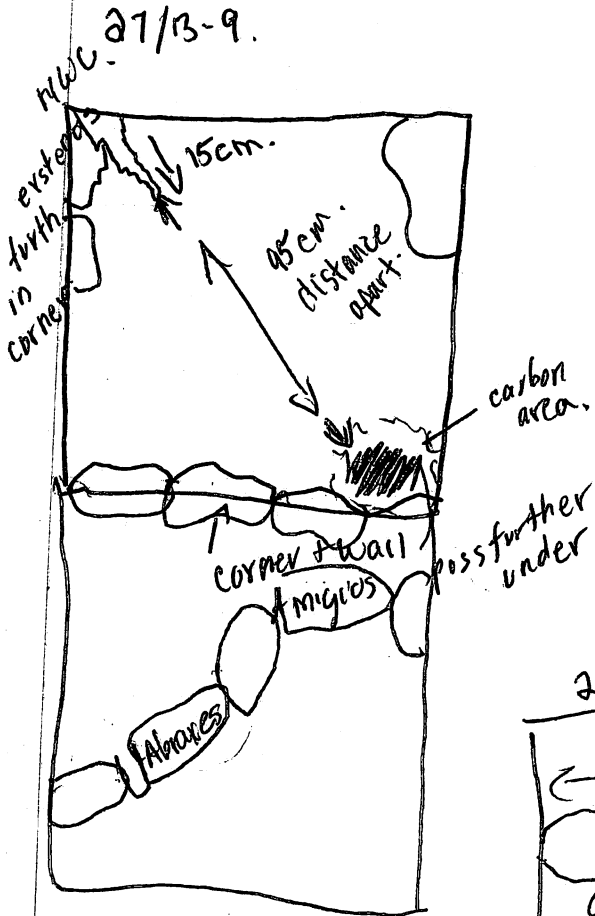 27/13-9.
NWC.
extends
furth.
in
corner
15cm.
95cm.
distance
apart.
carbon
area.
corner + wall
poss further
under
+ Migios
+ Abraxes
2